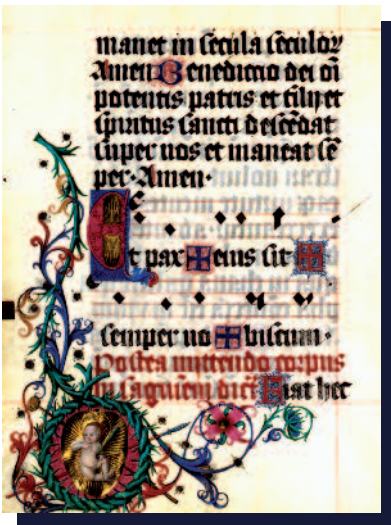 manet in secula seculoꝝ
Amen Benedictio dei oī
potentis patris et filij et
spiritus sancti descēdat
super uos et maneat sē
per · Amen ·
Et pax ✠ eius sit ✠
semper uo ✠ biscum ·
Postea mittendo corpus
in saguinem Fiat hec